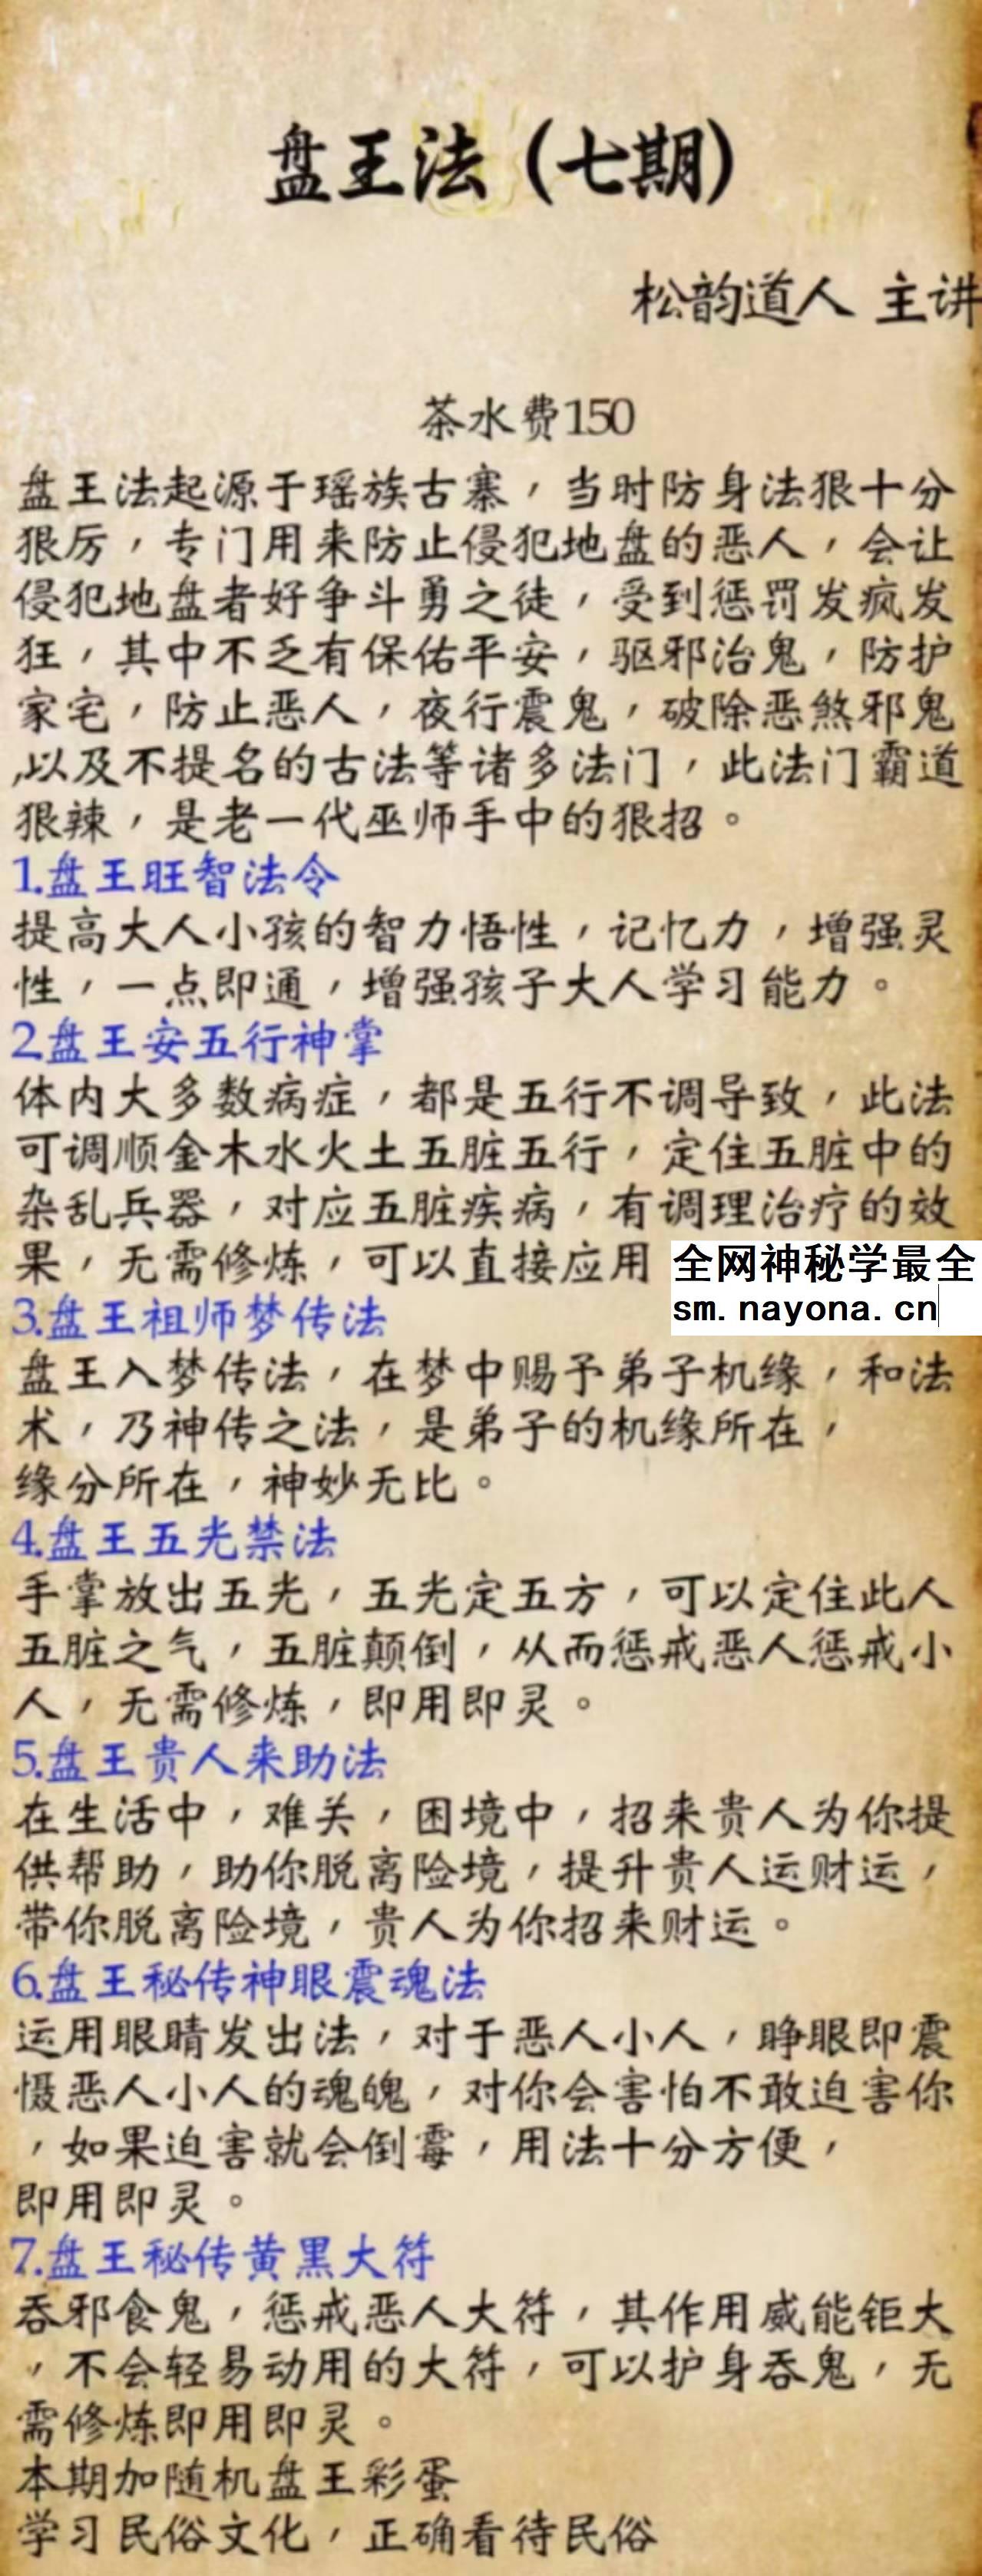 盘王法（七期）
松韵道人 主讲
茶水费150
盘王法起源于瑶族古寨，当时防身法狠十分
狠厉，专门用来防止侵犯地盘的恶人，会让
侵犯地盘者好争斗勇之徒，受到惩罚发疯发
狂，其中不乏有保佑平安，驱邪治鬼，防护
家宅，防止恶人，夜行震鬼，破除恶煞邪鬼
,以及不提名的古法等诸多法门，此法门霸道
狠辣，是老一代巫师手中的狠招。
1.盘王旺智法令
提高大人小孩的智力悟性，记忆力，增强灵
性，一点即通，增强孩子大人学习能力。
2.盘王安五行神掌
体内大多数病症，都是五行不调导致，此法
可调顺金木水火土五脏五行，定住五脏中的
杂乱兵器，对应五脏疾病，有调理治疗的效
果，无需修炼，可以直接应用
全网神秘学最全
sm.nayona.cn
3.盘王祖师梦传法
盘王入梦传法，在梦中赐予弟子机缘，和法
术，乃神传之法，是弟子的机缘所在，
缘分所在，神妙无比。
4.盘王五光禁法
手掌放出五光，五光定五方，可以定住此人
五脏之气，五脏颠倒，从而惩戒恶人惩戒小
人，无需修炼，即用即灵。
5.盘王贵人来助法
在生活中，难关，困境中，招来贵人为你提
供帮助，助你脱离险境，提升贵人运财运，
带你脱离险境，贵人为你招来财运。
6.盘王秘传神眼震魂法
运用眼睛发出法，对于恶人小人，睁眼即震
慑恶人小人的魂魄，对你会害怕不敢迫害你
，如果迫害就会倒霉，用法十分方便，
即用即灵。
7.盘王秘传黄黑大符
吞邪食鬼，惩戒恶人大符，其作用威能钜大
，不会轻易动用的大符，可以护身吞鬼，无
需修炼即用即灵。
本期加随机盘王彩蛋
学习民俗文化，正确看待民俗